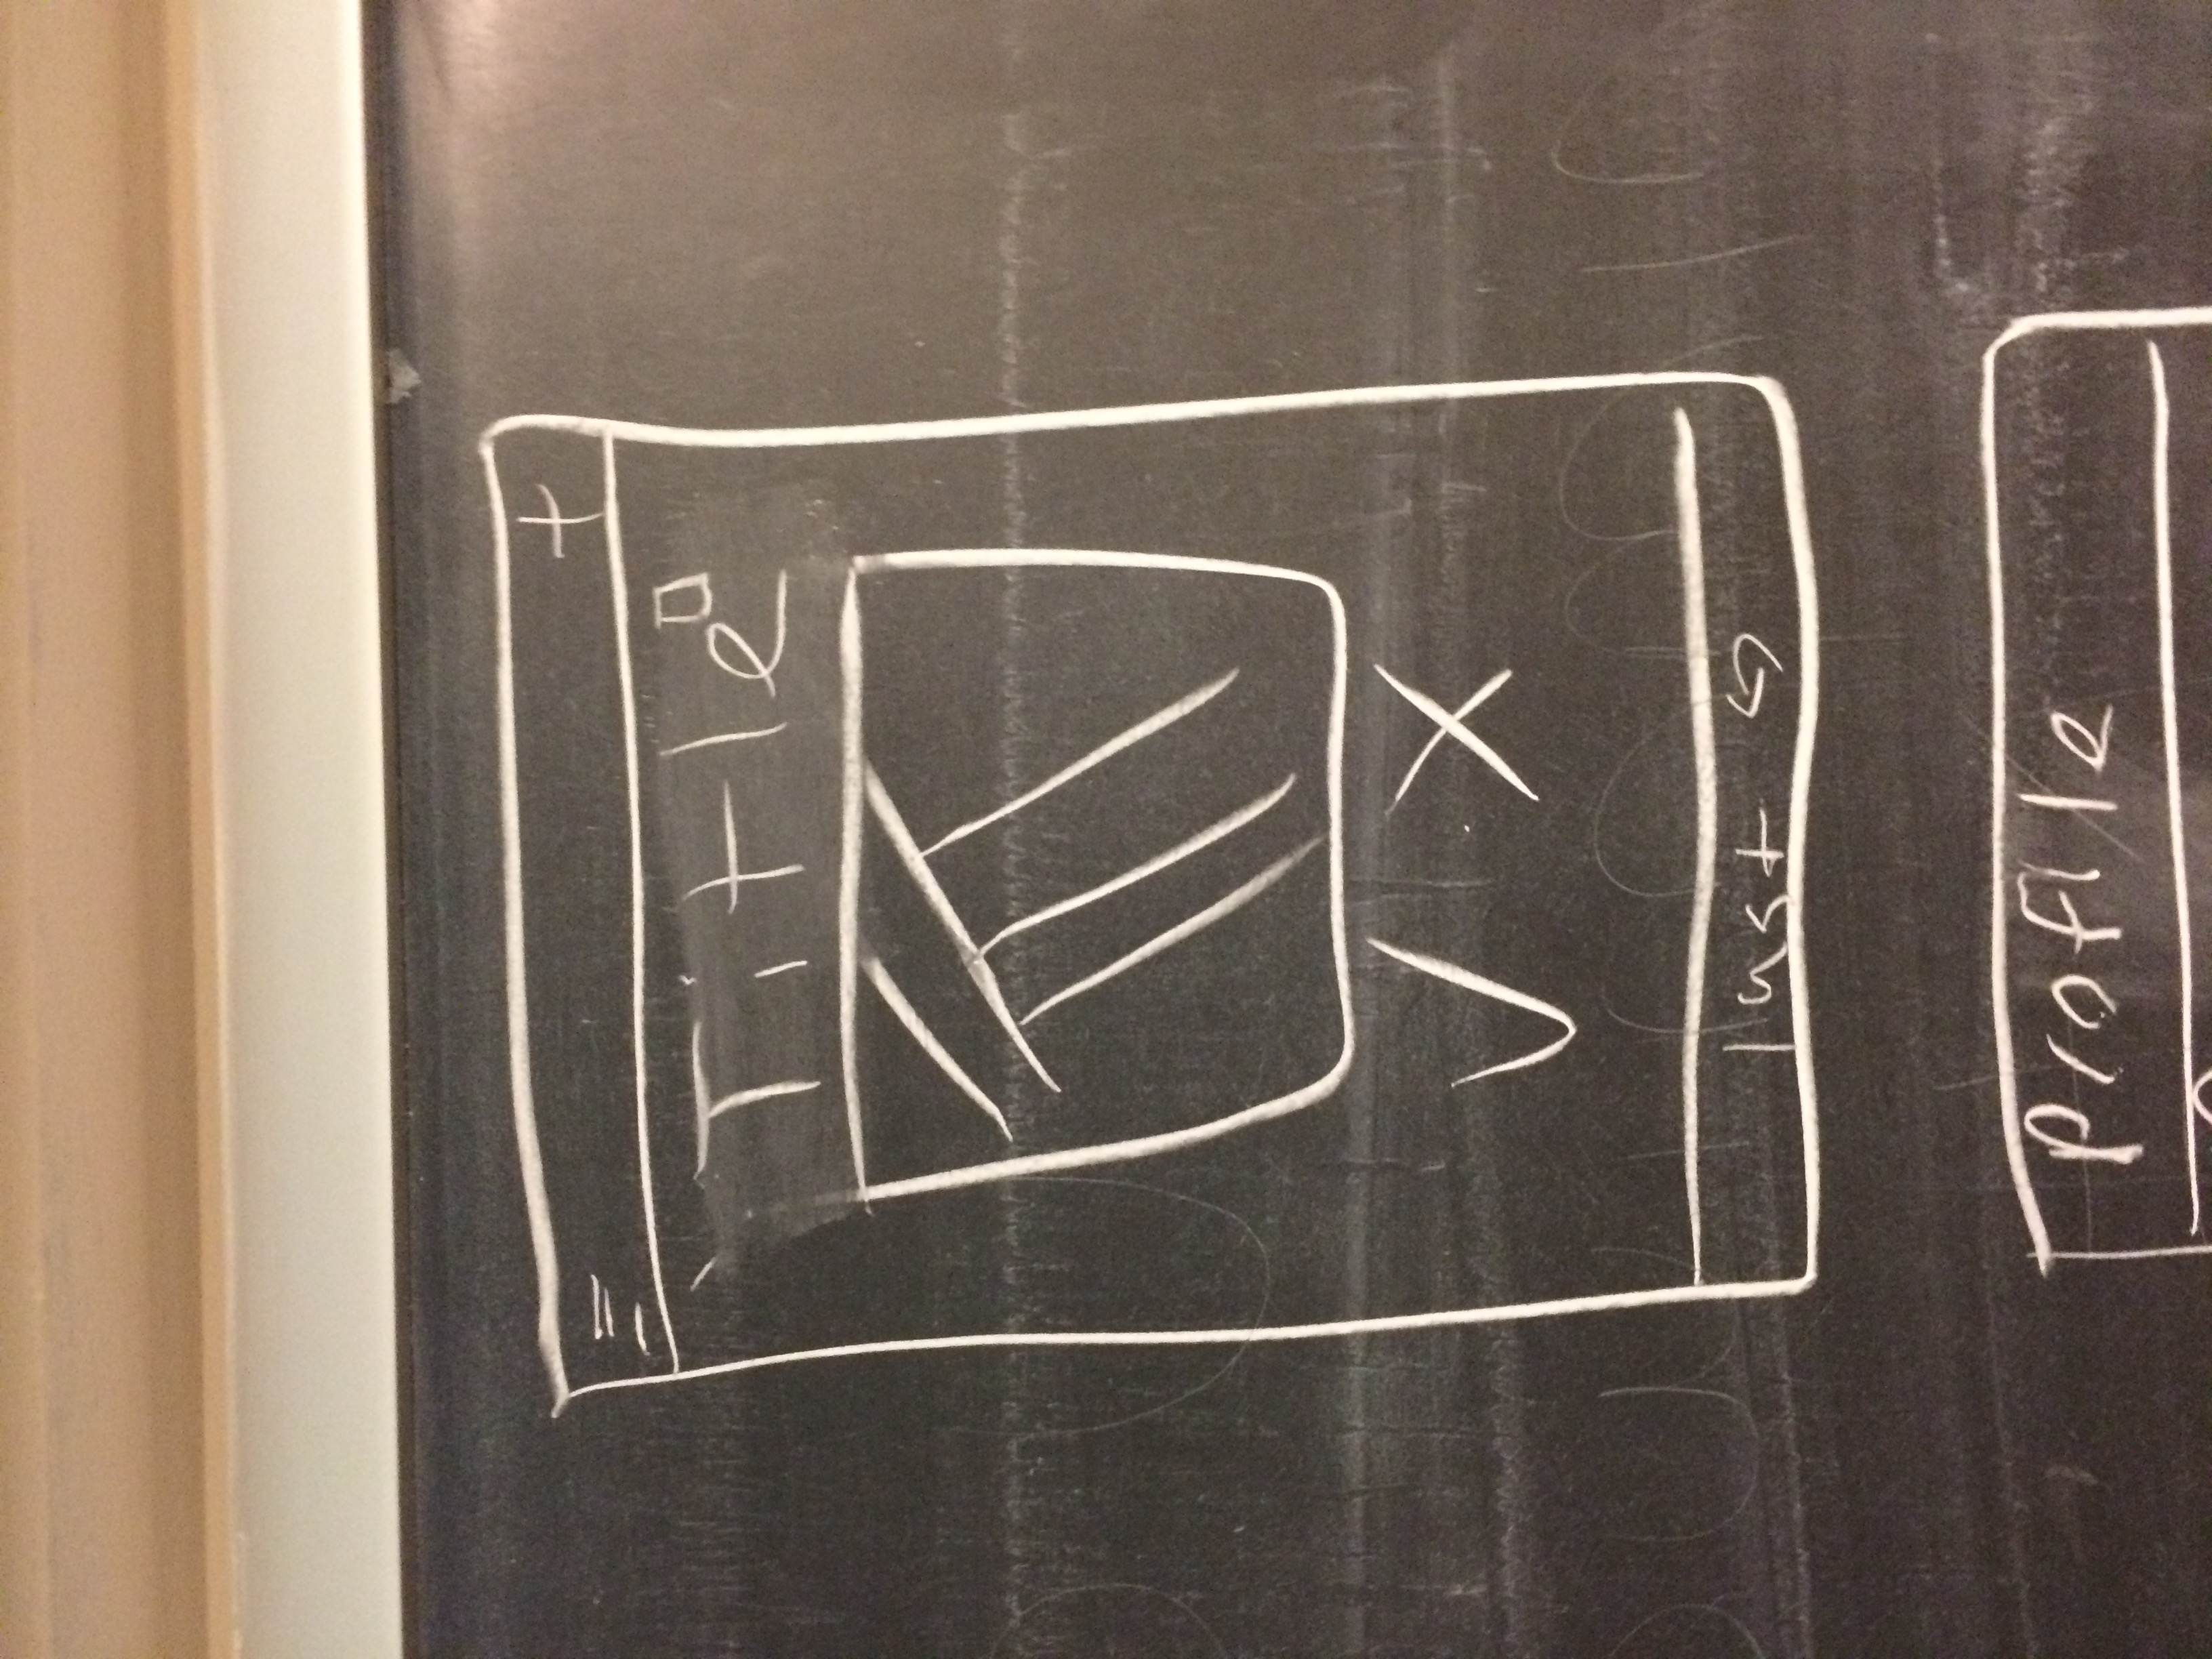 +
Title
✓ X
last
Profile